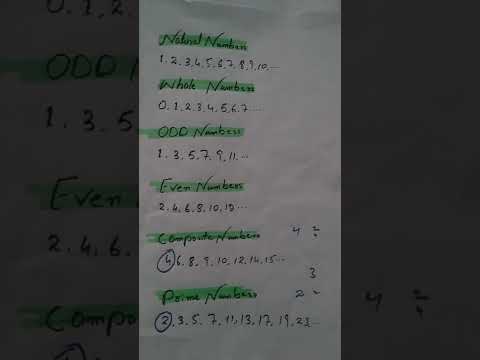 Natural Numbers
1, 2, 3, 4, 5, 6, 7, 8, 9, 10, ...
Whole Numbers
0, 1, 2, 3, 4, 5, 6, 7 ...
ODD Numbers
1, 3, 5, 7, 9, 11, ...
Even Numbers
2, 4, 6, 8, 10, 12, ...
Composite Numbers
4, 6, 8, 9, 10, 12, 14, 15, ...
4 2
3
Prime Numbers
2
2, 3, 5, 7, 11, 13, 17, 19, 23, ...